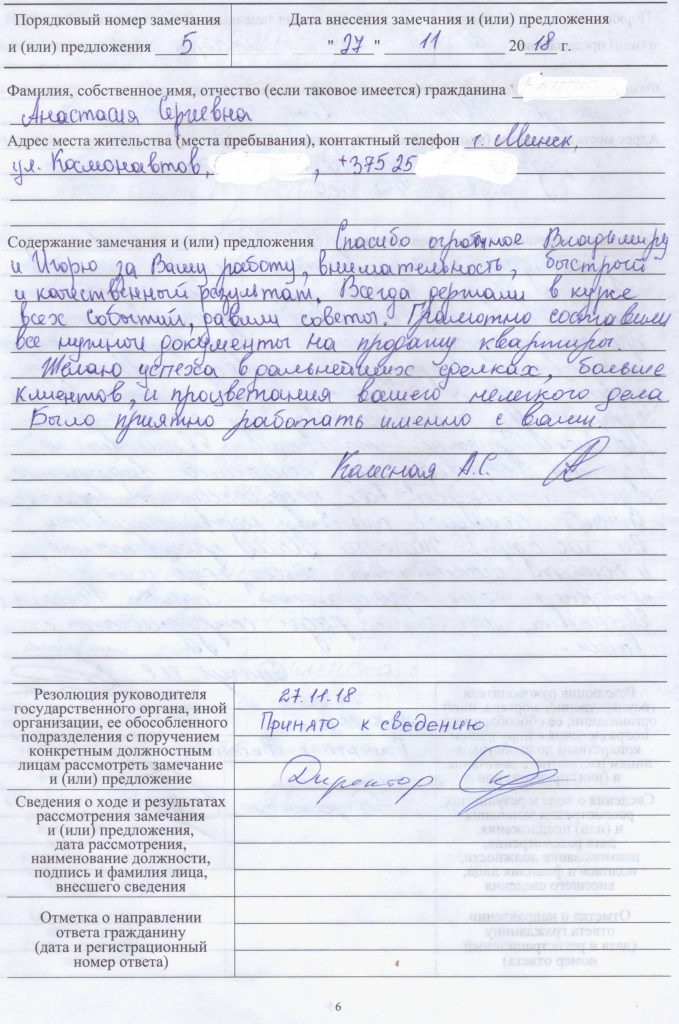 Порядковый номер замечания
и (или) предложения 5
Дата внесения замечания и (или) предложения
"27" 11 2018 г.
Фамилия, собственное имя, отчество (если таковое имеется) гражданина
Анастасия Сергиевна
Адрес места жительства (места пребывания), контактный телефон г. Минск,
ул. Космонавтов, , +375 25
Содержание замечания и (или) предложения Спасибо огромное Владимиру
и Игорю за Вашу работу, внимательность, быстрый
и качественный результат. Всегда держали в курсе
всех событий, давали советы. Грамотно составили
все нужные документы на продажу квартиры.
Желаю успеха в дальнейших сделках, больше
клиентов, и процветания вашего нелегкого дела
Было приятно работать именно с вами.
А.С.
Резолюция руководителя
государственного органа, иной
организации, ее обособленного
подразделения с поручением
конкретным должностным
лицам рассмотреть замечание
и (или) предложение
27.11.18
Принято к сведению
Директор
Сведения о ходе и результатах
рассмотрения замечания
и (или) предложения,
дата рассмотрения,
наименование должности,
подпись и фамилия лица,
внесшего сведения
Отметка о направлении
ответа гражданину
(дата и регистрационный
номер ответа)
6